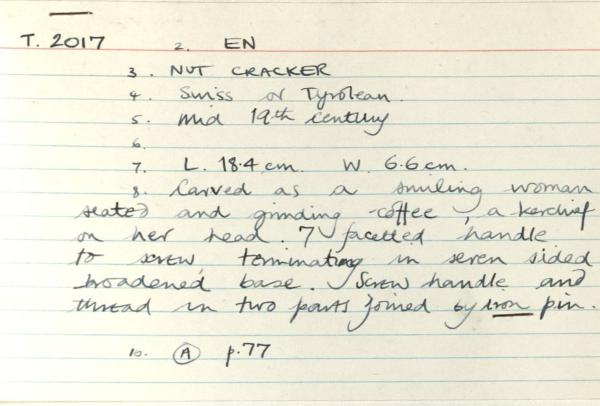 T. 2017 2. EN
3. NUT CRACKER
4. Swiss or Tyrolean.
5. Mid 19th century
6.
7. L. 18.4 cm. W. 6.6 cm.
8. Carved as a smiling woman
seated and grinding coffee, a kerchief
on her head. 7 facetted handle
to screw, terminating in seven sided
broadened base. Screw handle and
thread in two parts joined by iron pin.
10. A p.77